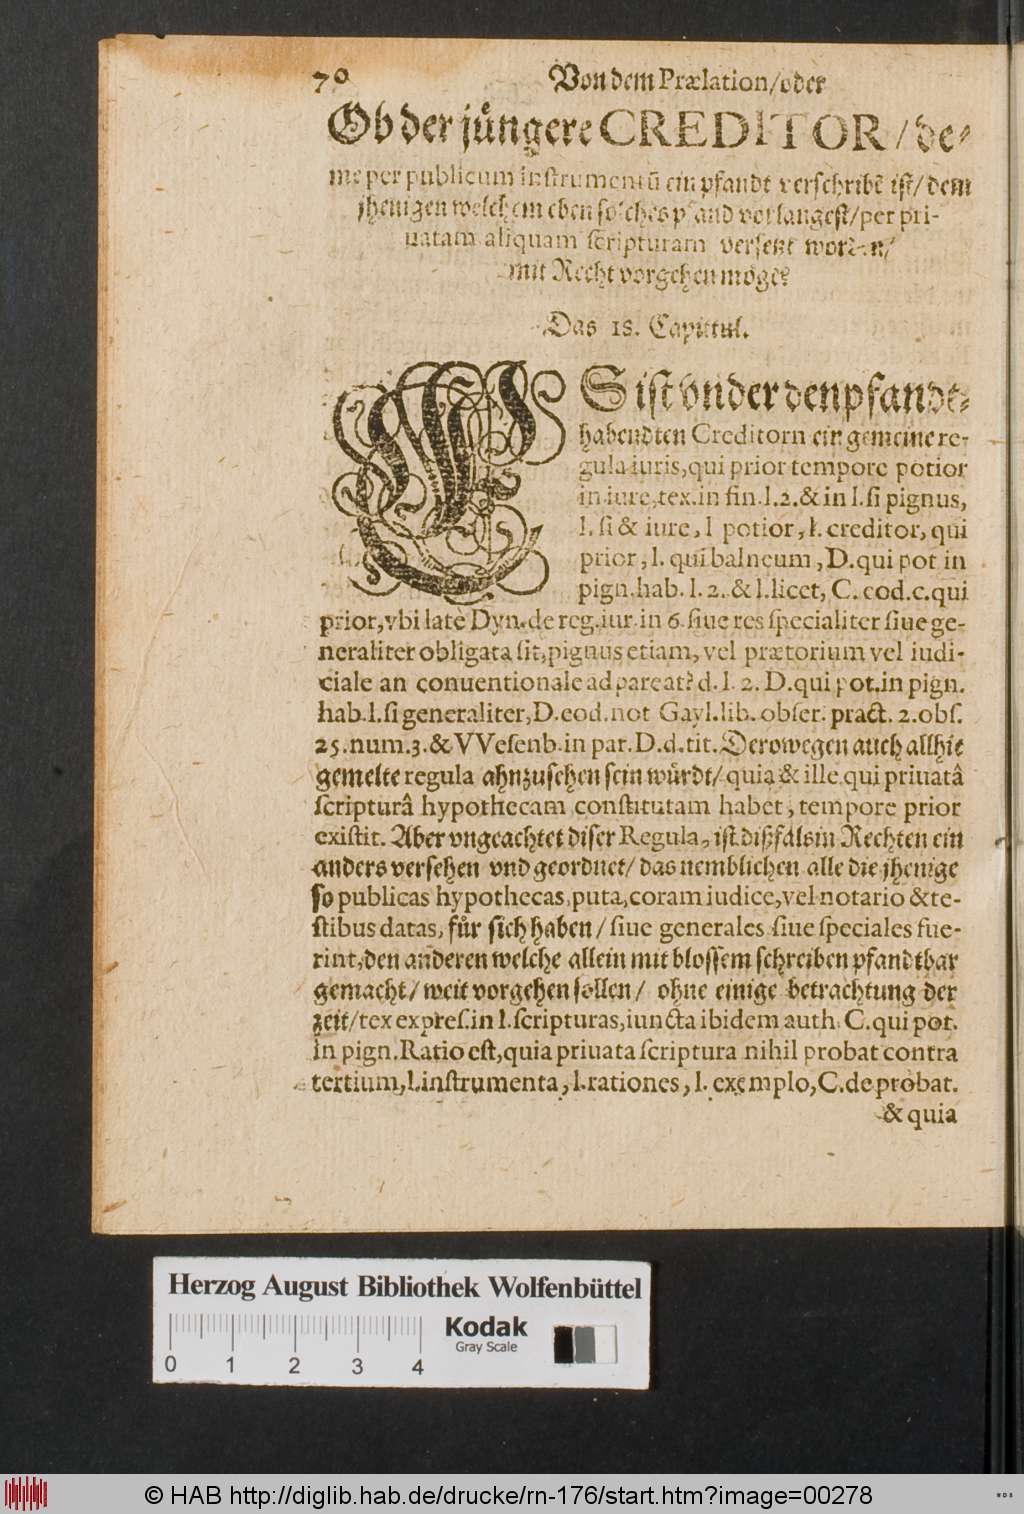 70 Von dem Prælation/oder
Ob der jüngere CREDITOR/de-
me per publicum instrumentū ein pfandt verschribē ist/dem
jhenigen welchem eben solches pfand vorlangest/per pri-
uatam aliquam scripturam versetzt worden/
mit Recht vorgehen möge?
Das 18. Capittul.
ES ist vnder den pfandt-
habendten Creditorn ein gemeine re-
gula iuris, qui prior tempore potior
in iure, tex. in fin. l. 2. & in l. si pignus,
l. si & iure, l potior, l. creditor, qui
prior, l. qui balneum, D. qui pot in
pign. hab. l. 2. & l. licet, C. eod. c. qui
prior, vbi late Dyn. de reg. iur. in 6. siue res specialiter siue ge-
neraliter obligata sit, pignus etiam, vel prætorium vel iudi-
ciale an conuentionale ad pareat? d. l. 2. D. qui pot. in pign.
hab. l. si generaliter, D. eod. not Gayl. lib. obser. pract. 2. obs.
25. num. 3. & VVesenb. in par. D. d. tit. Derowegen auch allhie
gemelte regula ahnzusehen sein würdt/ quia & ille qui priuatâ
scripturâ hypothecam constitutam habet, tempore prior
existit. Aber vngeachtet diser Regula, ist dißfals in Rechten ein
anders versehen vnd geordnet/ das nemblichen alle die jhenige
so publicas hypothecas, puta, coram iudice, vel notario & te-
stibus datas, für sich haben/ siue generales siue speciales fue-
rint, den anderen welche allein mit blossem schreiben pfandtbar
gemacht/ weit vorgehen sollen/ ohne einige betrachtung der
zeit/ tex expres. in l. scripturas, iuncta ibidem auth. C. qui pot.
in pign. Ratio est, quia priuata scriptura nihil probat contra
tertium, l. instrumenta, l. rationes, l. exemplo, C. de probat.
& quia
Herzog August Bibliothek Wolfenbüttel
Kodak
Gray Scale
0 1 2 3 4
© HAB http://diglib.hab.de/drucke/rn-176/start.htm?image=00278